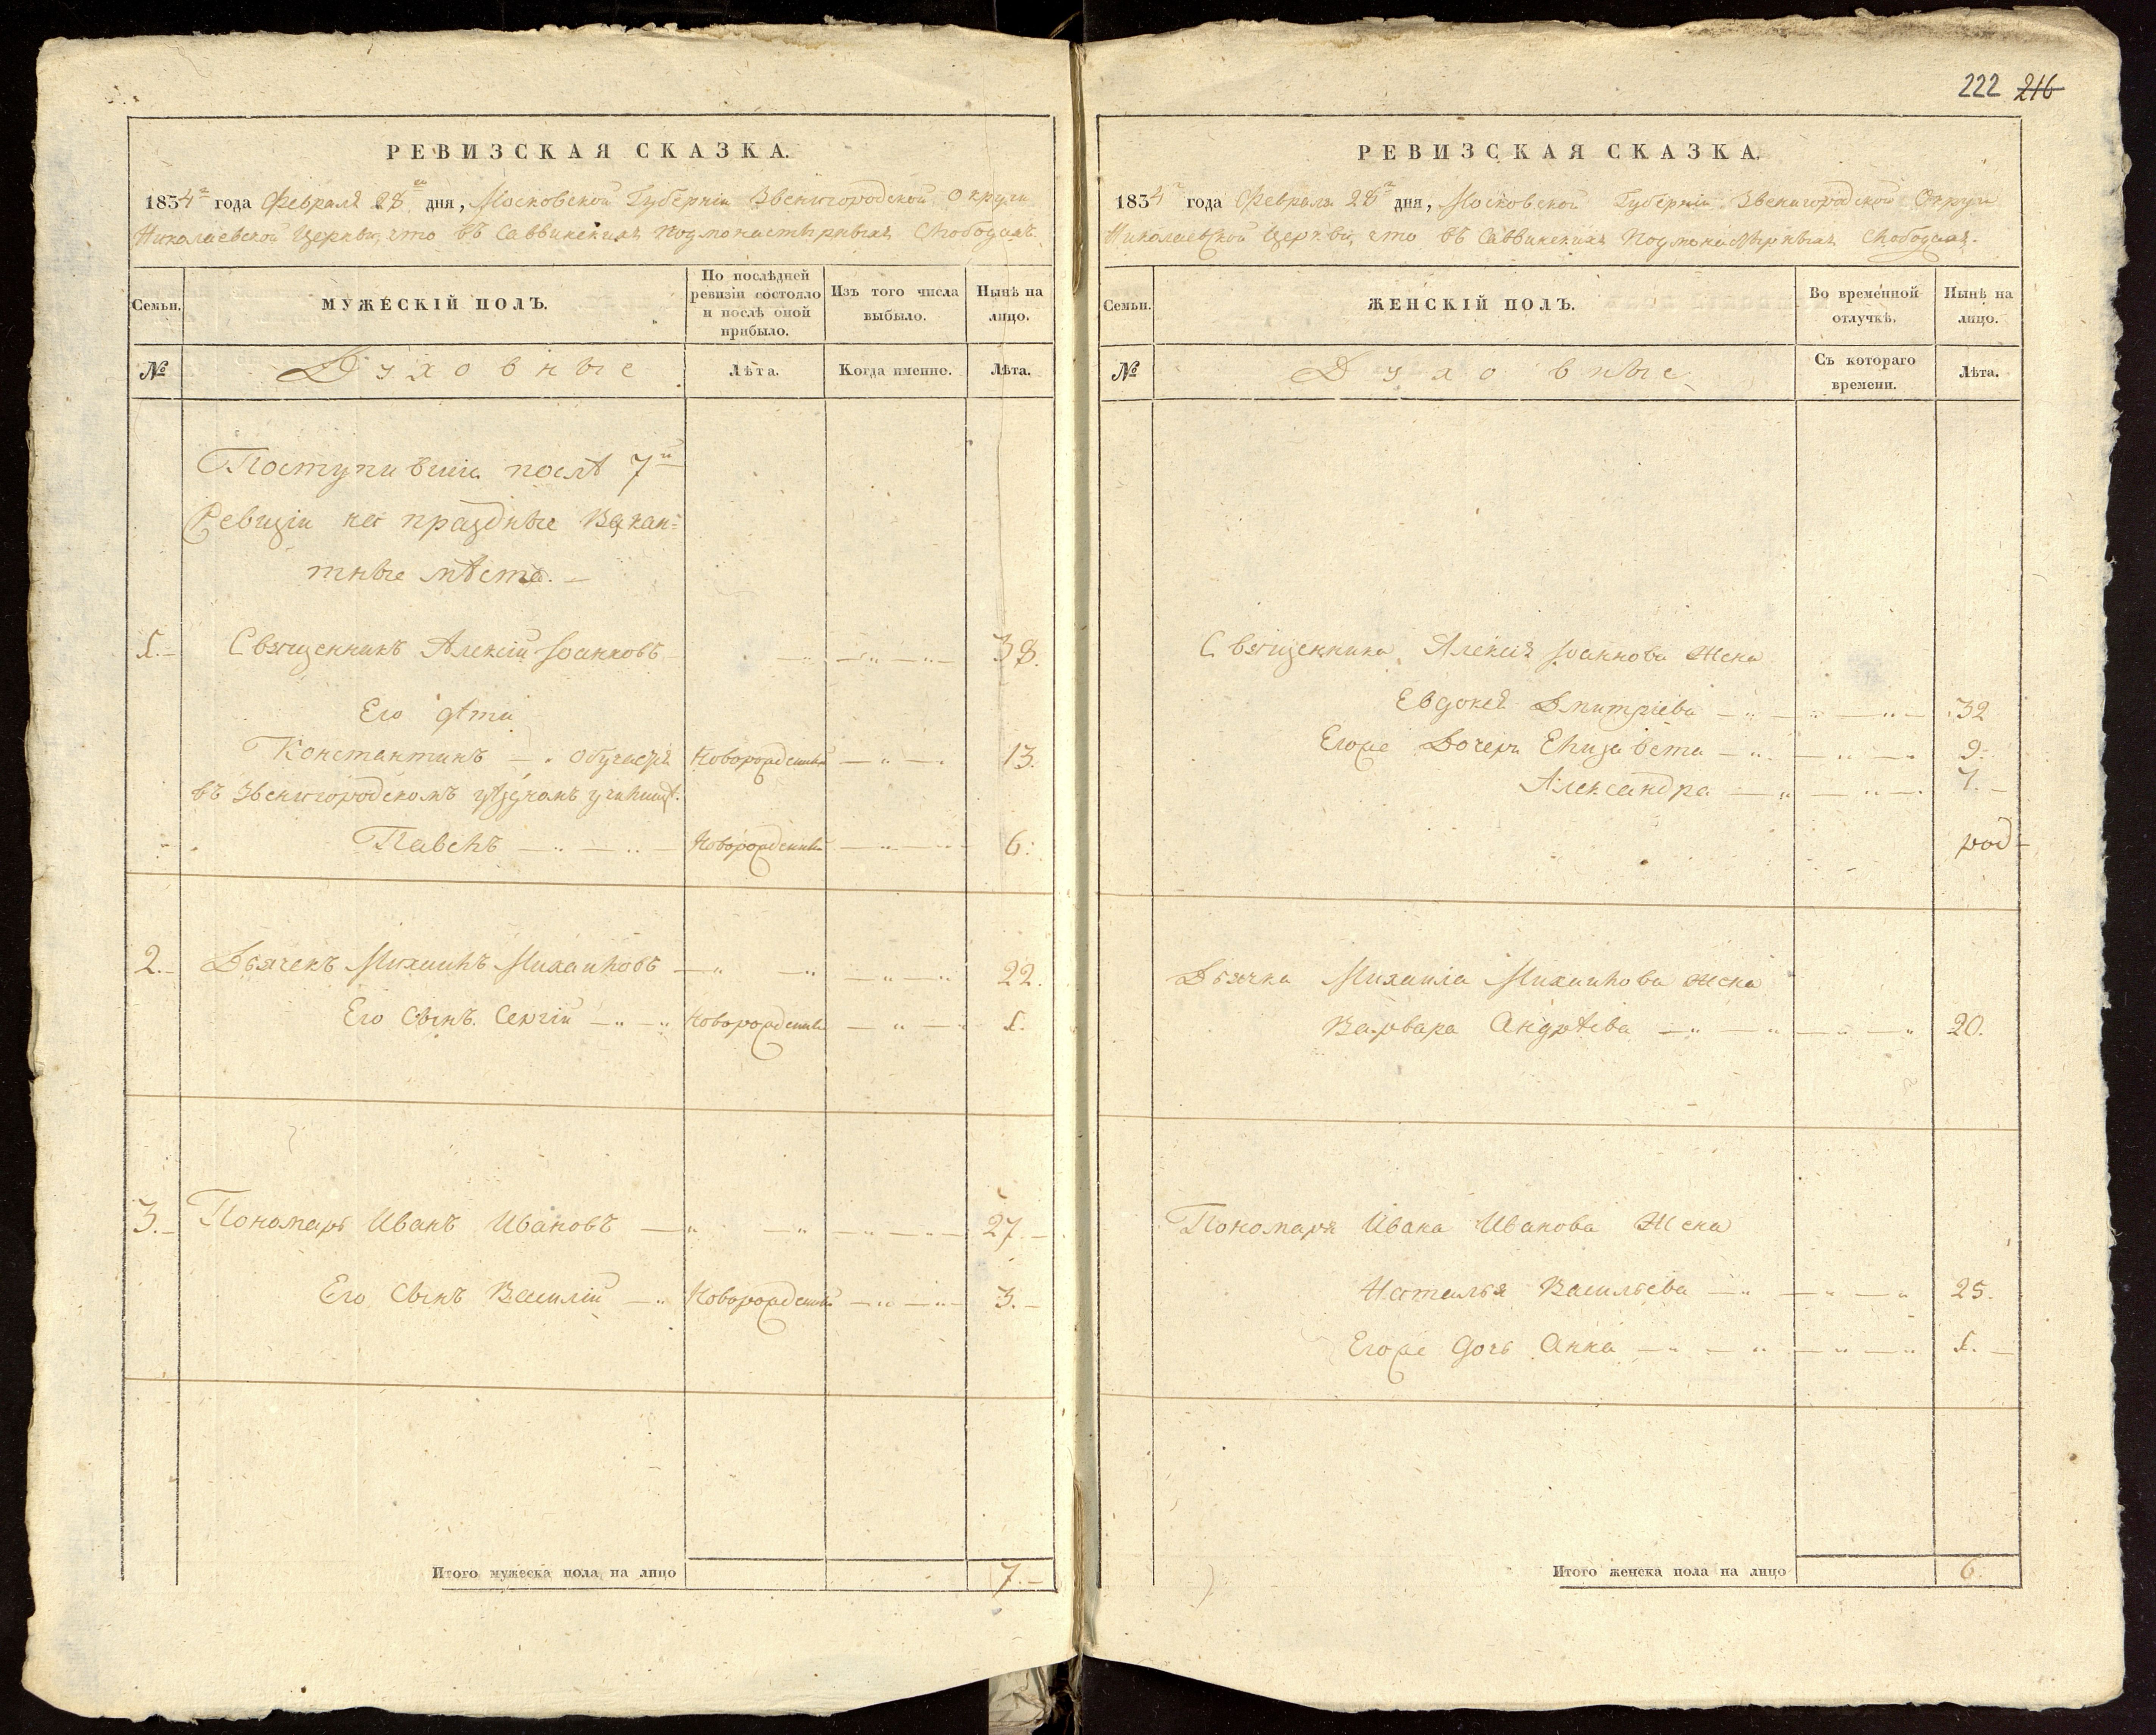 222 216
РЕВИЗСКАЯ СКАЗКА.
1834го года Февраля 28го дня, Московской Губерніи Звенигородской Округи
Николаевской Церкви, что въ Саввинскихъ Подмонастырныхъ Слободахъ.
Семьи.
МУЖЕСКІЙ ПОЛЪ.
По послѣдней ревизіи состояло и послѣ оной прибыло.
Изъ того числа выбыло.
Нынѣ на лицо.
№
Духовные
Лѣта.
Когда именно.
Лѣта.
Поступившіе послѣ 7й
Ревизіи на праздные Вакан=
тные мѣста.
1. Священникъ Алексій Іоанновъ 38.
Его дѣти
Константинъ обучается Новорожденный 13.
въ Звенигородскомъ уѣздномъ училищѣ.
Павелъ Новорожденный 6.
2. Дьячекъ Михаилъ Михайловъ 22.
Его Сынъ Сергій Новорожденный 1.
3. Пономарь Иванъ Ивановъ 27.
Его Сынъ Василій Новорожденный 3.
Итого мужеска пола на лицо 7.
РЕВИЗСКАЯ СКАЗКА.
1834го года Февраля 28го дня, Московской Губерніи Звенигородской Округи
Николаевской Церкви, что въ Саввинскихъ Подмонастырныхъ Слободахъ.
Семьи.
ЖЕНСКІЙ ПОЛЪ.
Во временной отлучкѣ.
Нынѣ на лицо.
№
Духовные
Съ котораго времени.
Лѣта.
Священника Алексія Іоаннова Жена
Евдокея Дмитріева 32
Егоже Дочери Елизавета 9.
Александра 7.
Дьячка Михаила Михайлова жена
Варвара Андрѣева 20.
Пономаря Ивана Иванова Жена
Наталья Васильева 25.
Егоже дочь Анна 1.
Итого женска пола на лицо 6.